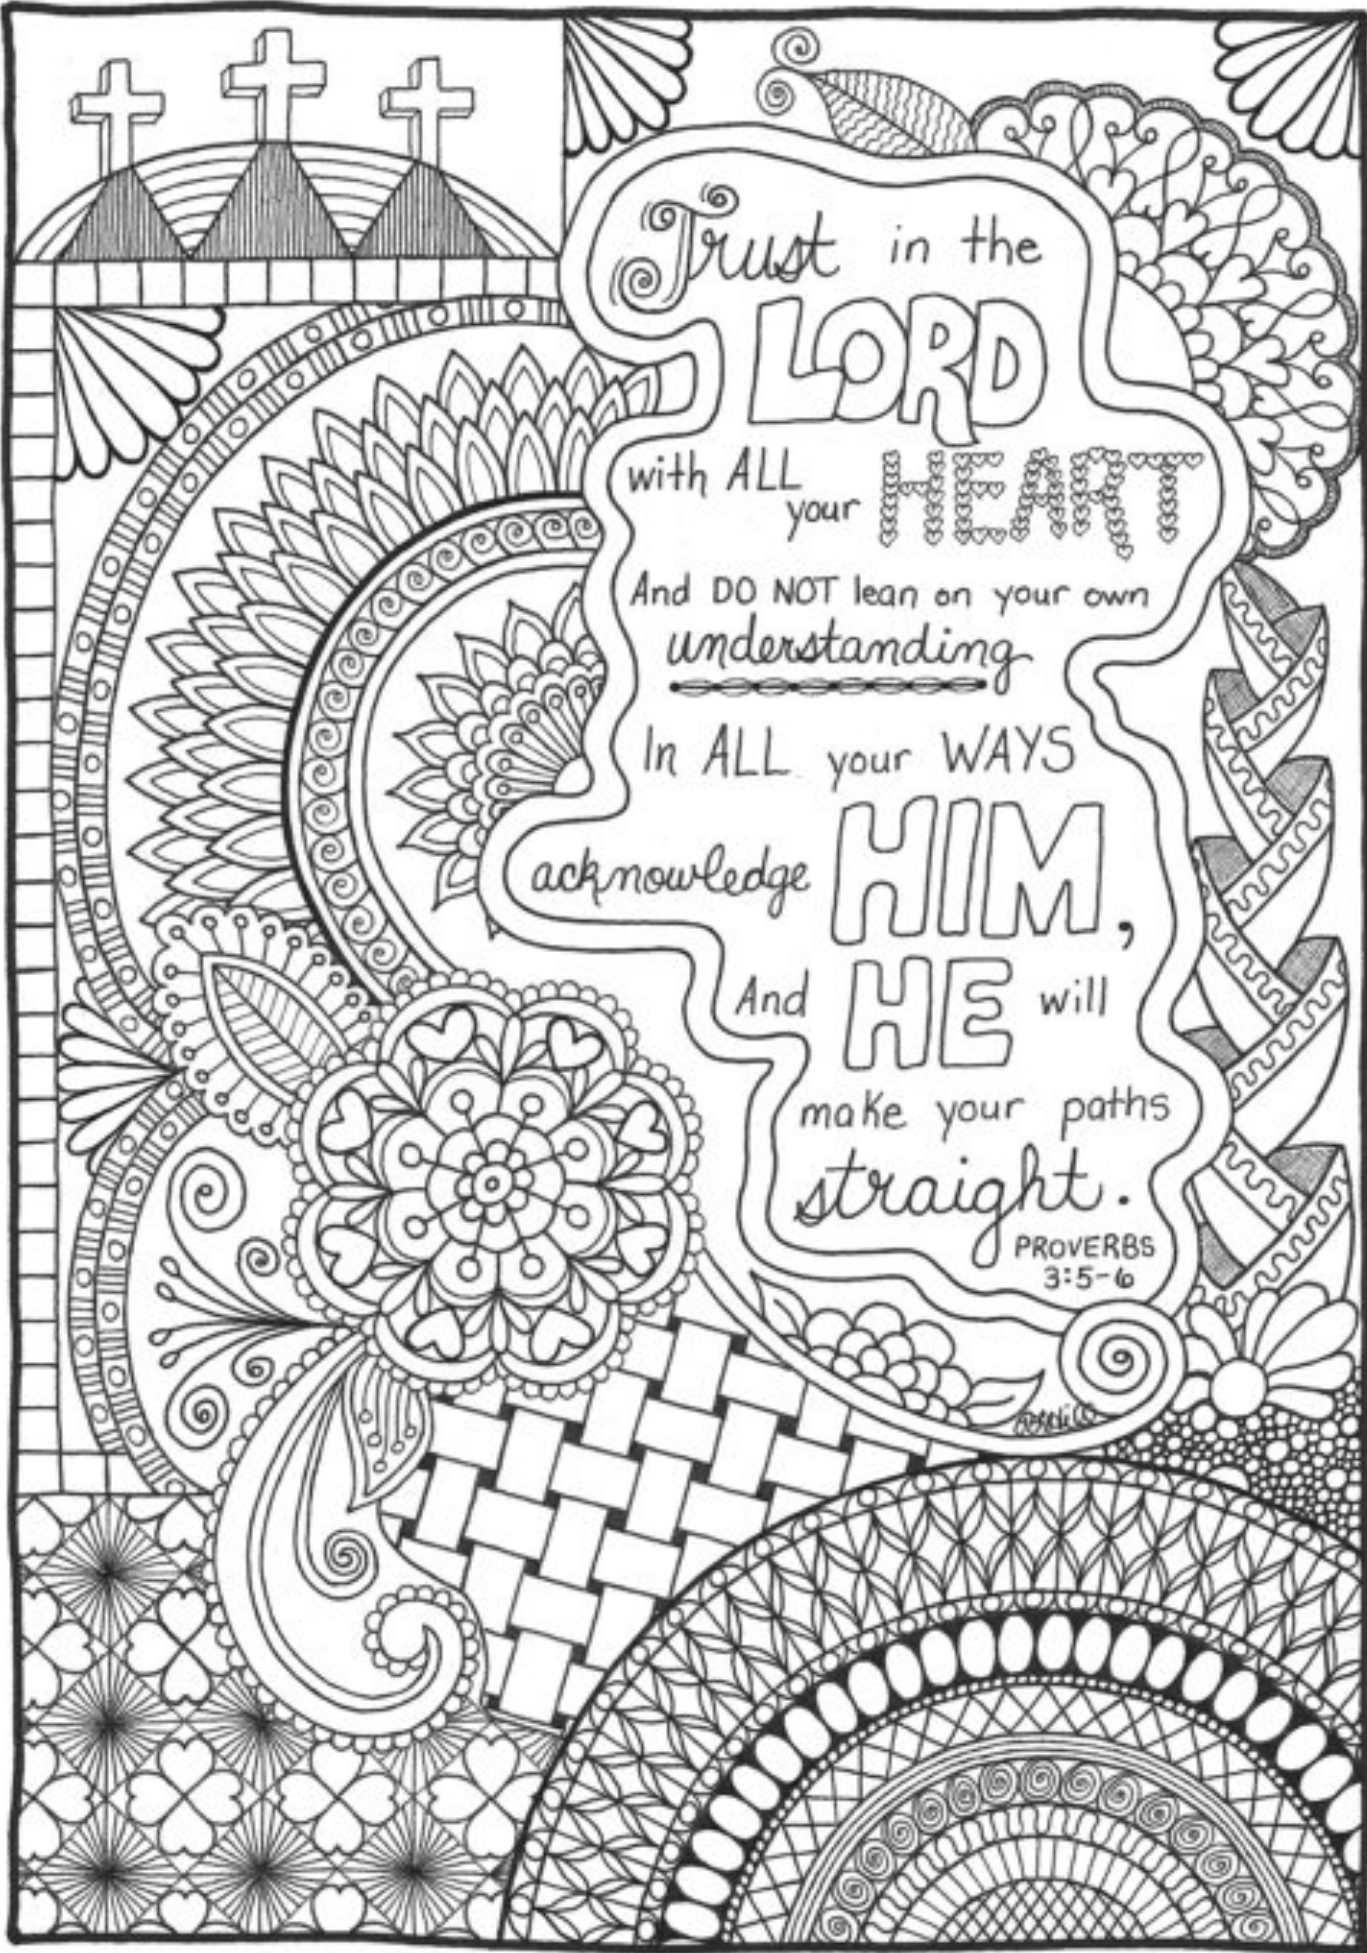 Trust in the
LORD
with ALL
your HEART
And DO NOT lean on your own
understanding
In ALL your WAYS
acknowledge HIM,
And HE will
make your paths
straight.
PROVERBS
3:5-6